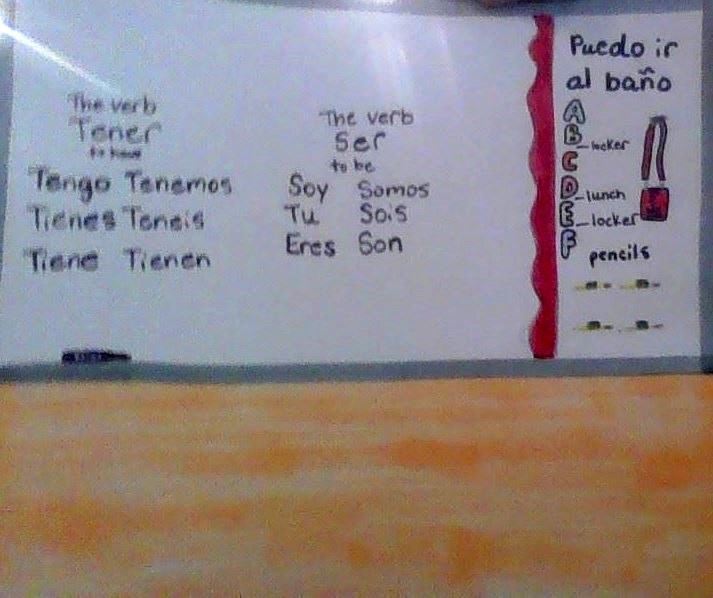 The verb
Tener
to have
Tengo Tenemos
Tienes Teneis
Tiene Tienen
The verb
Ser
to be
Soy Somos
Tu Sois
Eres Son
Puedo ir
al baño
A
B_locker
C
D_lunch
E_locker
F
pencils